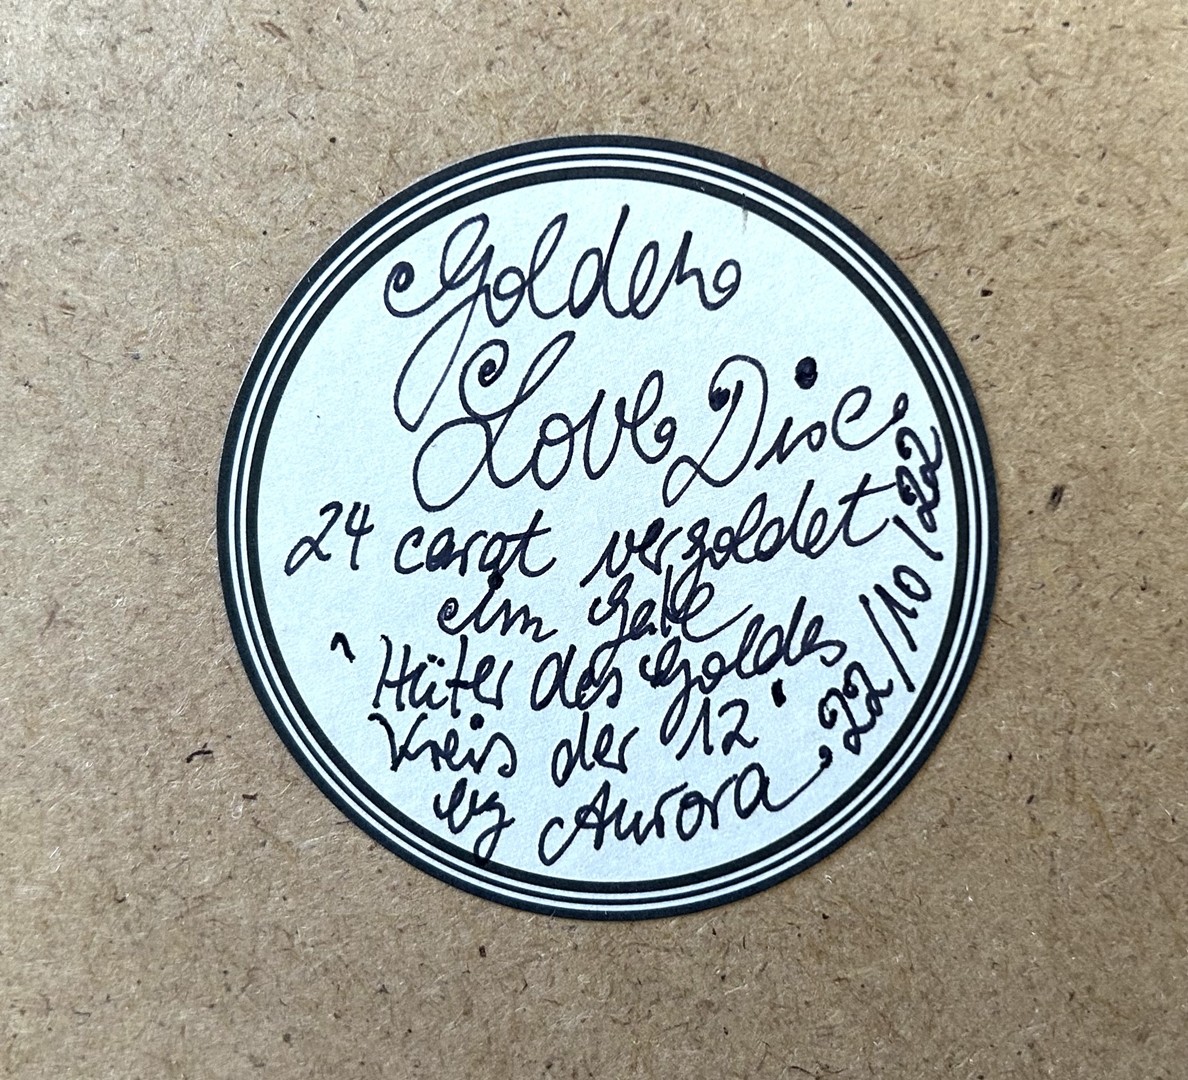 Golden
Love Disc
24 carat vergoldet
im
"Hüter des Goldes
Kreis der 12"
by Aurora
22/10/22